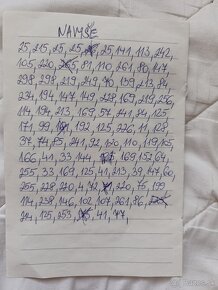 NAVYŠE
25, 215, 25, 25, 25, 141, 113, 242,
105, 220, 81, 110, 261, 86, 147,
298, 298, 219, 249, 70, 139, 213, 84,
234, 194, 147, 149, 228, 169, 219, 256,
114, 194, 213, 169, 57, 241, 84, 125,
171, 99, 192, 125, 226, 11, 128,
37, 74, 85, 241, 92, 170, 110, 119, 105,
166, 41, 33, 144, 169, 152, 64,
255, 33, 169, 125, 41, 213, 39, 147, 60,
255, 228, 220, 4, 72, 220, 75, 199,
114, 238, 146, 102, 107, 261, 86,
204, 125, 253, 41, 47,